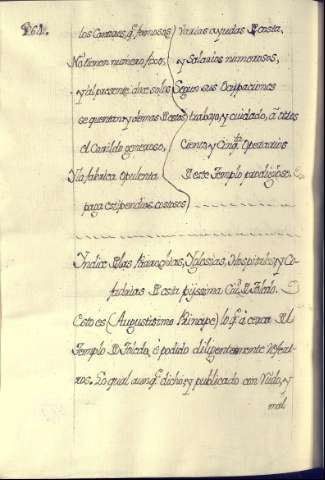 los Cantores, q.e famosos
No tienen numero fixo,
y al presente doze solos
se quentan, y demas D estos
el Cavildo generoso,
Y la fabrica opulenta
paga estipendios costosos
Varias ayudas D costa,
y Salarios numerosos,
Segun sus Ocupaciones
trabajo, y cuidado, á otros
Ciento, y Cinq.ta Operarios
D este Templo prodigioso.
Indice D las Parrochias, Yglesias, Hospitales, y Co-
fadrias D esta pijssima Ciu.d D Toledo.
Esto es (Augustissimo Principe) lo q.e á cerca D el
Templo D Toledo, é podido diligentemente Vesear-
ros. Lo qual aunq.e dicho, y publicado con Vudo, y
mal